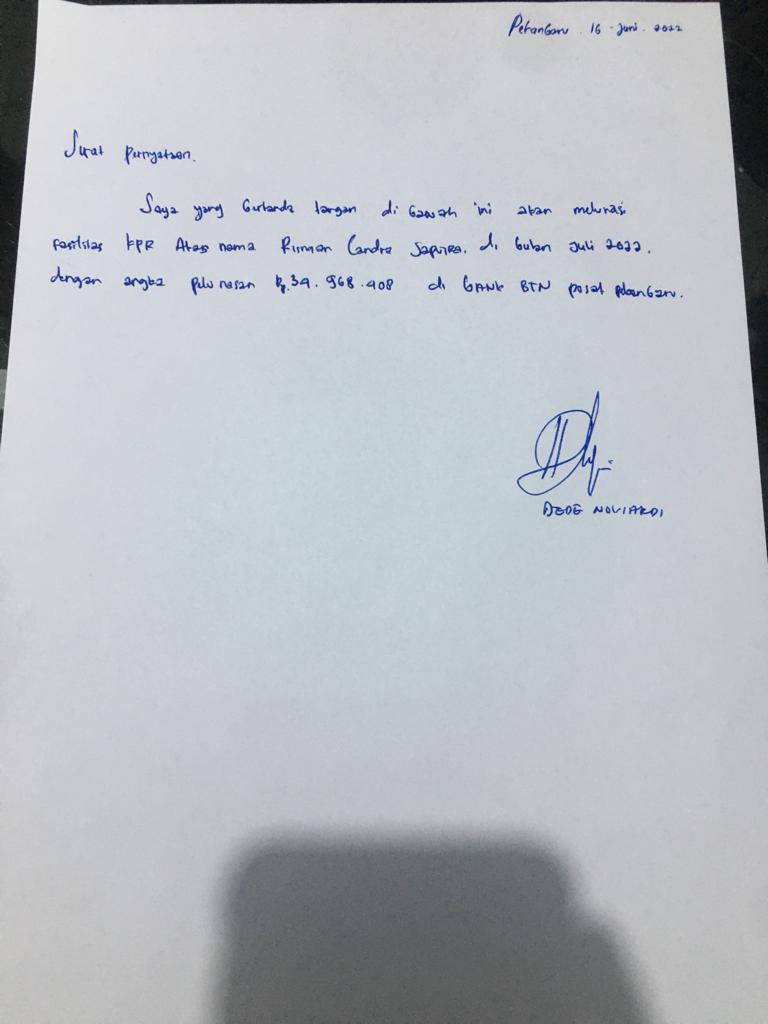 Pekanbaru . 16 - Juni . 2022
Surat pernyataan.
Saya yang bertanda tangan di bawah ini akan melunasi
fasilitas KPR Atas nama Candra Saputra. di bulan Juli 2022.
dengan angka pelunasan Rp.34.968.408 di BANK BTN pusat pekanbaru.
DEDE NOVIARDI